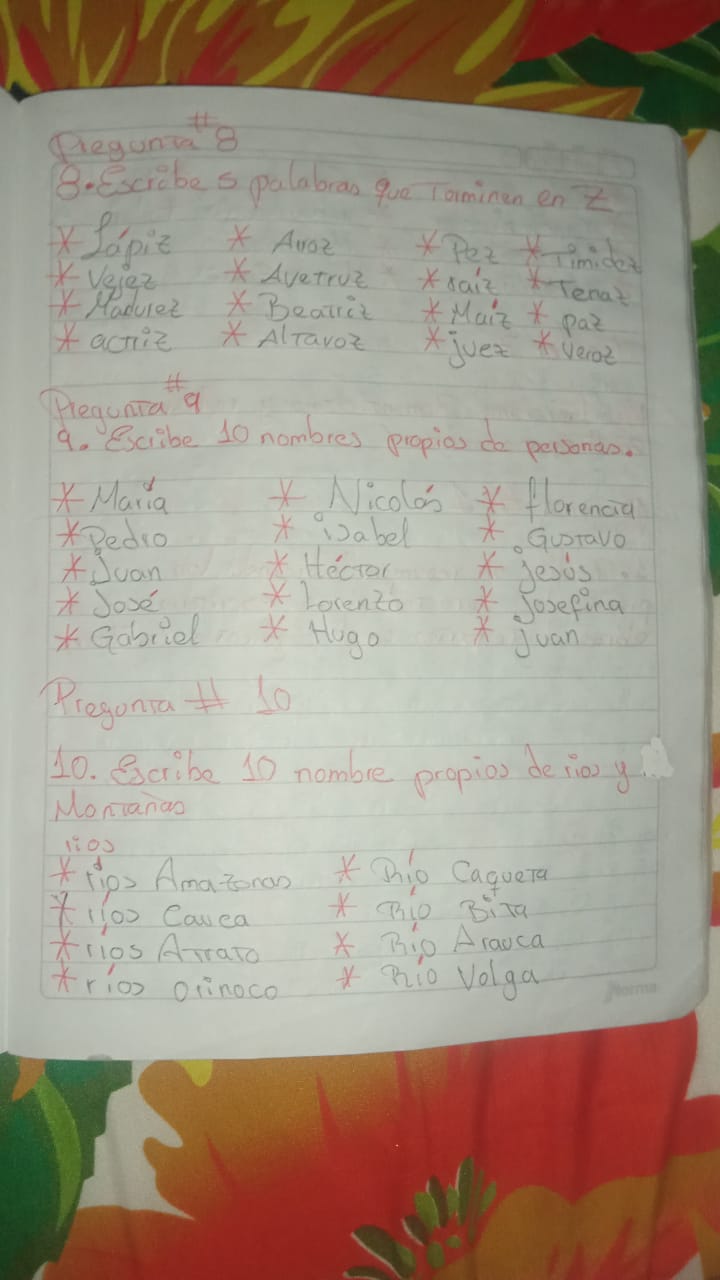 Pregunta #8
8. Escribe 5 palabras que Terminen en Z
* Lápiz * Arroz * Pez * Timidez
* Vejez * Avetruz * raíz * Tenaz
* Madurez * Beatriz * Maíz * paz
* actriz * Altavoz * juez * veraz
Pregunta #9
9. Escribe 10 nombres propios de personas.
* María * Nicolás * florencia
* Pedro * isabel * Gustavo
* Juan * Héctor * jesús
* José * Lorenzo * Josefina
* Gabriel * Hugo * juan
Pregunta # 10
10. Escribe 10 nombre propios de rios y
Montañas
rios
* rios Amazonas * Río Caqueta
* rios Cauca * Río Bita
* rios Atrato * Río Arauca
* ríos Orinoco * Río Volga
Norma